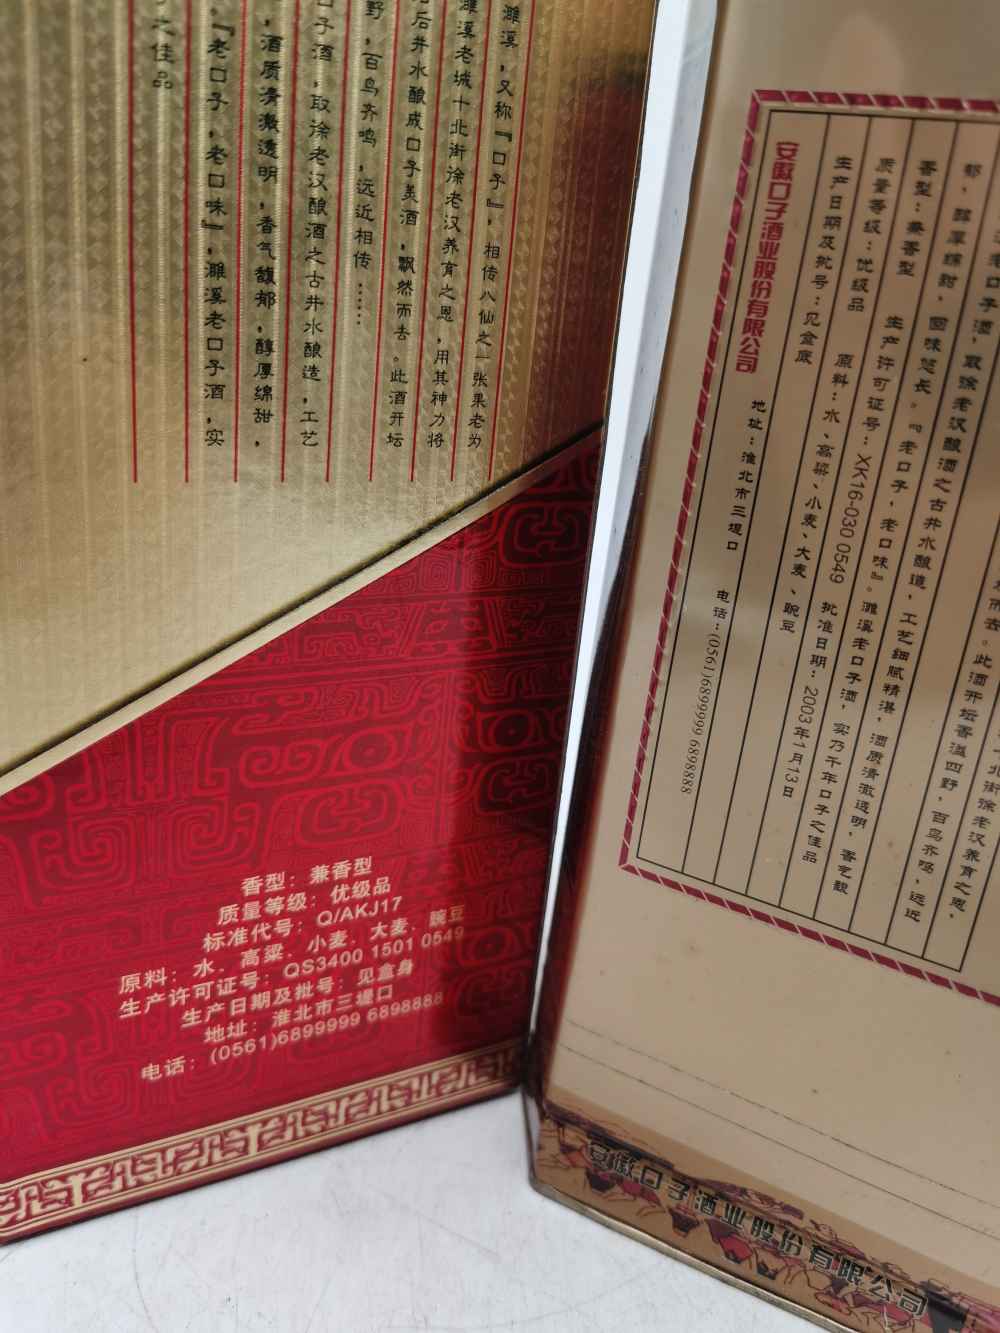 濉溪，又称『口子』，相传八仙之一张果老为
濉溪老城十北街徐老汉养育之恩，用其神力将
后井水酿成口子美酒，飘然而去。此酒开坛
野，百鸟齐鸣，远近相传……
口子酒，取徐老汉酿酒之古井水酿造，工艺
，酒质清澈透明，香气馥郁，醇厚绵甜，
。『老口子，老口味』，濉溪老口子酒，实
之佳品
香型：兼香型
质量等级：优级品
标准代号：Q/AKJ17
原料：水、高粱、小麦、大麦、豌豆
生产许可证号：QS3400 1501 0549
生产日期及批号：见盒身
地址：淮北市三堤口
电话：(0561)6899999 6898888
北街徐老汉养育之恩，
而去。此酒开坛香溢四野，百鸟齐鸣，远近
老口子酒，取徐老汉酿酒之古井水酿造，工艺细腻精湛，酒质清澈透明，香气馥
郁，醇厚绵甜，回味悠长。『老口子，老口味』。濉溪老口子酒，实乃千年口子之佳品
香型：兼香型 生产许可证号：XK16-030 0549 批准日期：2003年1月13日
质量等级：优级品 原料：水、高粱、小麦、大麦、豌豆
生产日期及批号：见盒底
安徽口子酒业股份有限公司 地址：淮北市三堤口 电话：(0561)6899999 6898888
安徽口子酒业股份有限公司